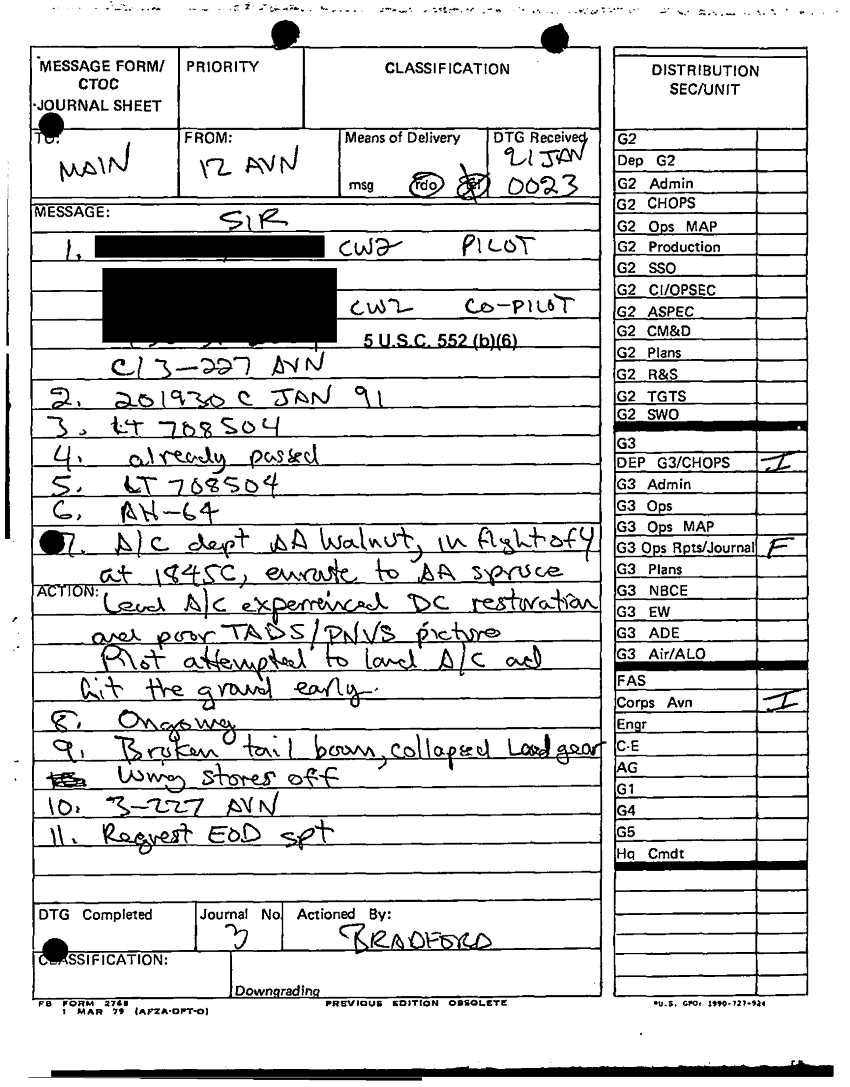 MESSAGE FORM/
CTOC
JOURNAL SHEET
PRIORITY
CLASSIFICATION
TO:
MAIN
FROM:
12 AVN
Means of Delivery
msg rdo
DTG Received
21 JAN
0023
MESSAGE:
SIR
1. CW2 PILOT
CW2 CO-PILOT
5 U.S.C. 552 (b)(6)
C/3-227 AVN
2. 201930 C JAN 91
3. LT 708504
4. already passed
5. LT 708504
6. AH-64
7. A/C dept AA Walnut, in flight of 4
at 1845C, enroute to AA spruce
ACTION:
Lead A/C experienced DC restoration
and poor TADS/PNVS picture
Pilot attempted to land A/C ad
hit the ground early.
8. Ongoing
9. Broken tail boom, collapsed Land gear
Wing stores off
10. 3-227 AVN
11. Request EOD spt
DTG Completed
Journal No.
3
Actioned By:
BRADFORD
CLASSIFICATION:
Downgrading
FB FORM 2768
1 MAR 79 (AFZA-DPT-O)
PREVIOUS EDITION OBSOLETE
DISTRIBUTION
SEC/UNIT
G2
Dep G2
G2 Admin
G2 CHOPS
G2 Ops MAP
G2 Production
G2 SSO
G2 CI/OPSEC
G2 ASPEC
G2 CM&D
G2 Plans
G2 R&S
G2 TGTS
G2 SWO
G3
DEP G3/CHOPS I
G3 Admin
G3 Ops
G3 Ops MAP
G3 Ops Rpts/Journal F
G3 Plans
G3 NBCE
G3 EW
G3 ADE
G3 Air/ALO
FAS
Corps Avn I
Engr
C-E
AG
G1
G4
G5
Hq Cmdt
*U.S. GPO: 1990-727-924